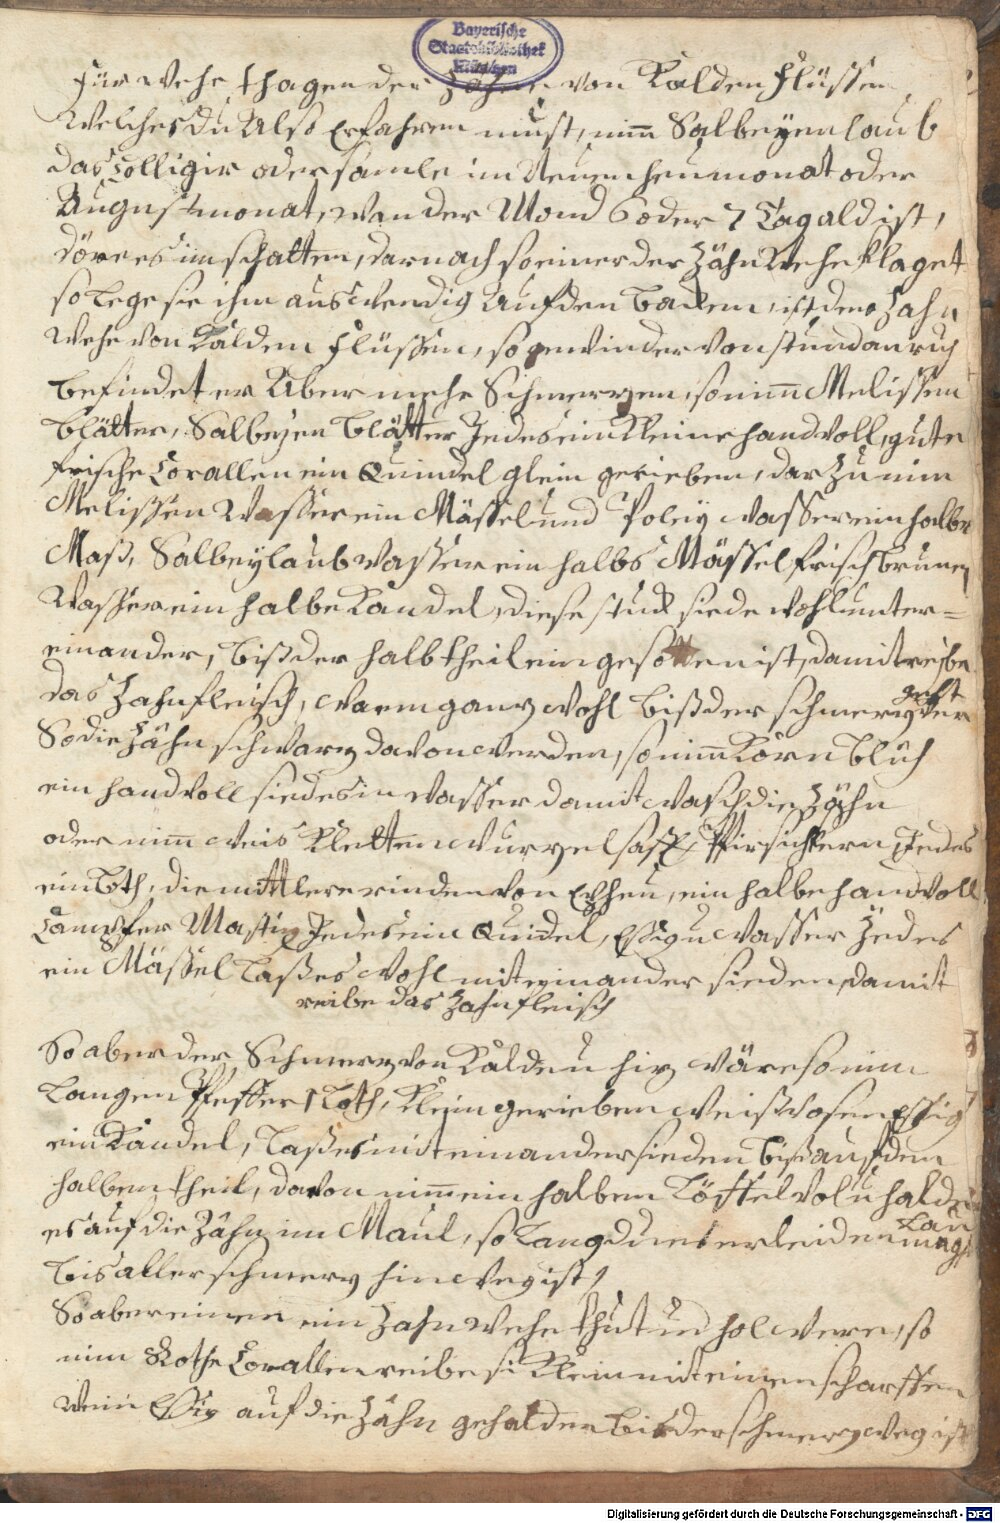 Bayerische
Staatsbibliothek
München
Für wehe thagen der Zähne von Kalden Flüssen,
Welches du Also Erfahren must, nim̅ Salbeÿen laub
das Colligir oder samle im Neuen heumonat oder
Augustmonat, wan der Mond 6 oder 7 Tag ald ist,
dörres im schatten, darnach so einer der Zähn Wehe klaget
so lege sie ihm auswendig Auf den backen, ist der Zahn
Wehe von Kalden Flüssen, so gewinder von stund an ruh
befindet er Aber mehr Schmerzen, so nim̅ Melissen
blätter, Salbeÿen blätter Jedes ein Kleine hand voll, gute
frische Corallen ein Quindel glein gerieben, dar Zu nim
Melissen Wasser ein Mässel und Poleÿ wasser ein halbe
Maß, Salbeÿlaub wasser ein halbs Mässel frisch brunen
Wasser ein halbe Kandel, diese stuck siede wohl unter=
einander, biß der halb theil ein gesotten ist, damit reibe
das Zahnfleisch, warm ganz wohl biß der schmerz ver
geht
So die Zähn schwarz davon werden, so nim̅ Korn blüh
ein hand voll siedes in wasser damit wasch die Zähn
oder nim̅ weis Kletten wurzel safft, Pfirsichkern Jedes
ein loth, die mittlere rinden von Epheu, ein halbe hand voll
Campfer Mastix Jedes ein Quidel, Essig u wasser Jedes
ein Mässel laß es wohl mit einander sieden, damit
reibe das Zahnfleisch
So aber der Schmerz von Kalden hiz wäre so nim
langen Pfeffer 1 loth, Klein gerieben weiß rosen Essig
ein Kandel, laß es mit einander sieden biß auf den
halben theil, davon nim̅ ein halben löffel vol u halde
es auf die Zähn im Maul, so lang du es erleiden magst
lau
bis aller schmerz hinweg ist,
So aber einen ein Zahn wehe thut und hol were, so
nim Rothe Corallen reibe si Klein mit einen scharffen
Wein Essig auf die Zähn gehalden bis der schmerz weg ist
Digitalisierung gefördert durch die Deutsche Forschungsgemeinschaft - DFG